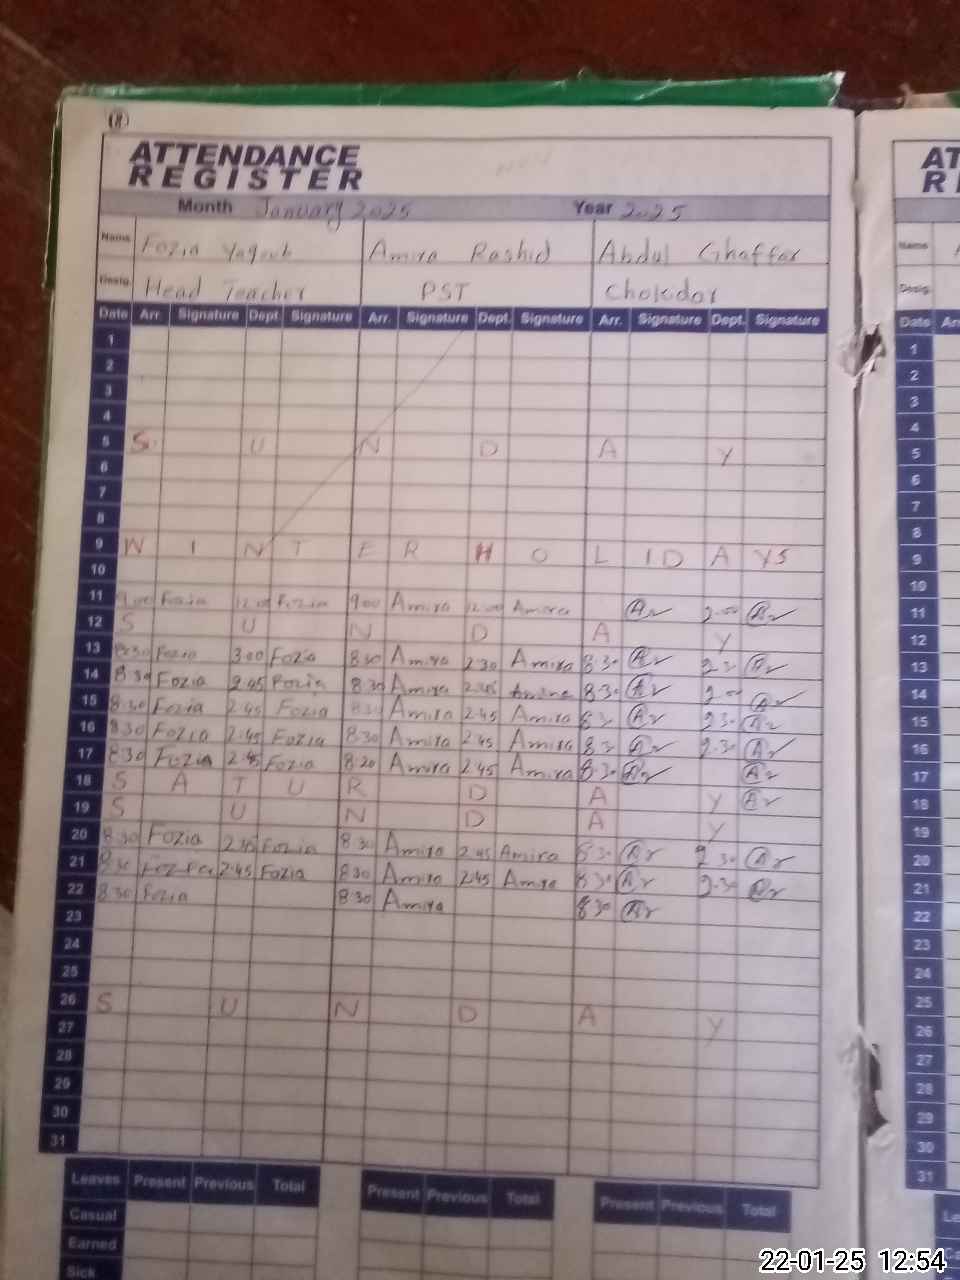 (8)
ATTENDANCE
REGISTER
Month January 2025 Year 2025
Name Fozia Yaqoub Amira Rashid Abdul Ghaffar
Desig. Head Teacher PST Chokidar
Date Arr. Signature Dept. Signature Arr. Signature Dept. Signature Arr. Signature Dept. Signature
1
2
3
4
5 S U N D A Y
6
7
8
9 W I N T E R H O L I D A Y S
10
11 9.00 Fozia 12.00 Fozia 9.00 Amira 12.00 Amira Ar 2.00 Ar
12 S U N D A Y
13 8:30 Fozia 3.00 Fozia 8.30 Amira 2.30 Amira 8.30 Ar 2.30 Ar
14 8.30 Fozia 2.45 Fozia 8.30 Amira 2.45 Amira 8.30 Ar 2.00 Ar
15 8.30 Fozia 2.45 Fozia 8.30 Amira 2.45 Amira 8.30 Ar 2.30 Ar
16 8.30 Fozia 2.45 Fozia 8.30 Amira 2.45 Amira 8.3 Ar 2.30 Ar
17 8.30 Fozia 2.45 Fozia 8.20 Amira 2.45 Amira 8.30 Ar Ar
18 S A T U R D A Y Ar
19 S U N D A Y
20 8.30 Fozia 2.45 Fozia 8.30 Amira 2.45 Amira 8.30 Ar 2.30 Ar
21 8.30 Fozia 2.45 Fozia 8.30 Amira 2.45 Amira 8.30 Ar 2.30 Ar
22 8.30 Fozia 8.30 Amira 8.30 Ar
23
24
25
26 S U N D A Y
27
28
29
30
31
Leaves Present Previous Total Present Previous Total Present Previous Total
Casual
Earned
Sick
AT
R
Name
Desig.
Date
1
2
3
4
5
6
7
8
9
10
11
12
13
14
15
16
17
18
19
20
21
22
23
24
25
26
27
28
29
30
31
22-01-25 12:54